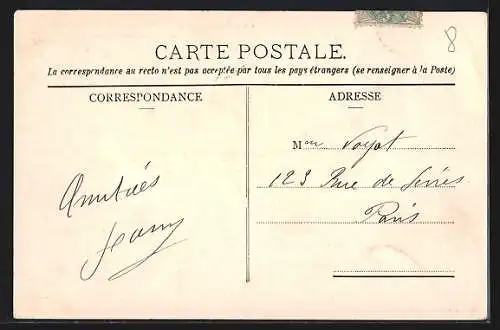 8
CARTE POSTALE.
La correspondance au recto n'est pas acceptée par tous les pays étrangers (se renseigner à la Poste)
CORRESPONDANCE
ADRESSE
Amitiés
Mme Voyot
123 Rue de Sèvres
Paris